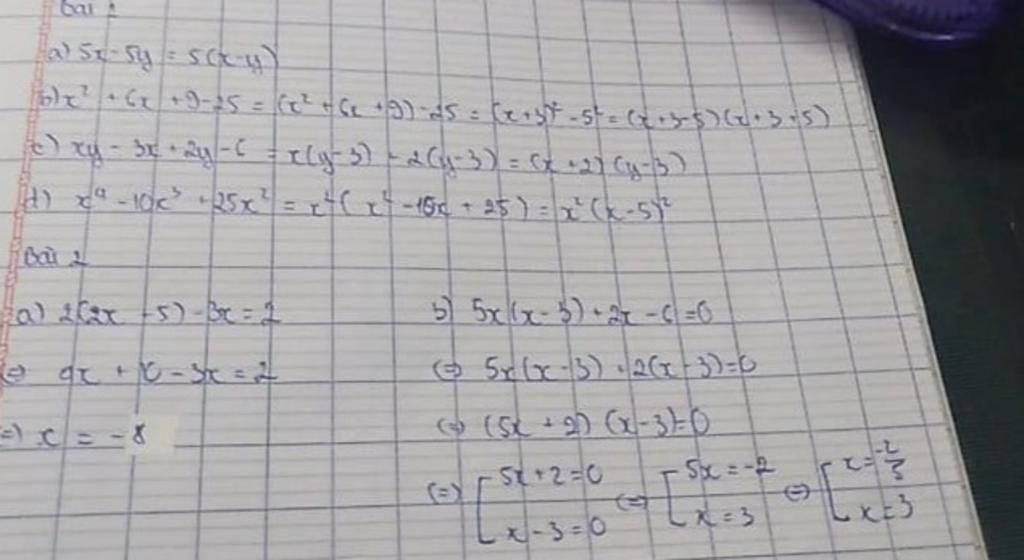 Bài 1
a) 5x - 5y = 5(x-y)
b) x² + 6x + 9 - 25 = (x² + 6x + 9) - 25 = (x+3)² - 5² = (x+3-5)(x+3+5)
c) xy - 3x + 2y - 6 = x(y-3) + 2(y-3) = (x+2)(y-3)
d) x⁴ - 10x³ + 25x² = x²(x² - 10x + 25) = x²(x-5)²
Bài 2
a) 2(2x + 5) - 3x = 2
⇔ 4x + 10 - 3x = 2
⇔ x = -8
b) 5x(x-3) + 2x - 6 = 0
⇔ 5x(x-3) + 2(x-3) = 0
⇔ (5x + 2)(x-3) = 0
⇔ [ 5x + 2 = 0 ⇔ [ 5x = -2 ⇔ [ x = -2/5
x - 3 = 0 x = 3 x = 3